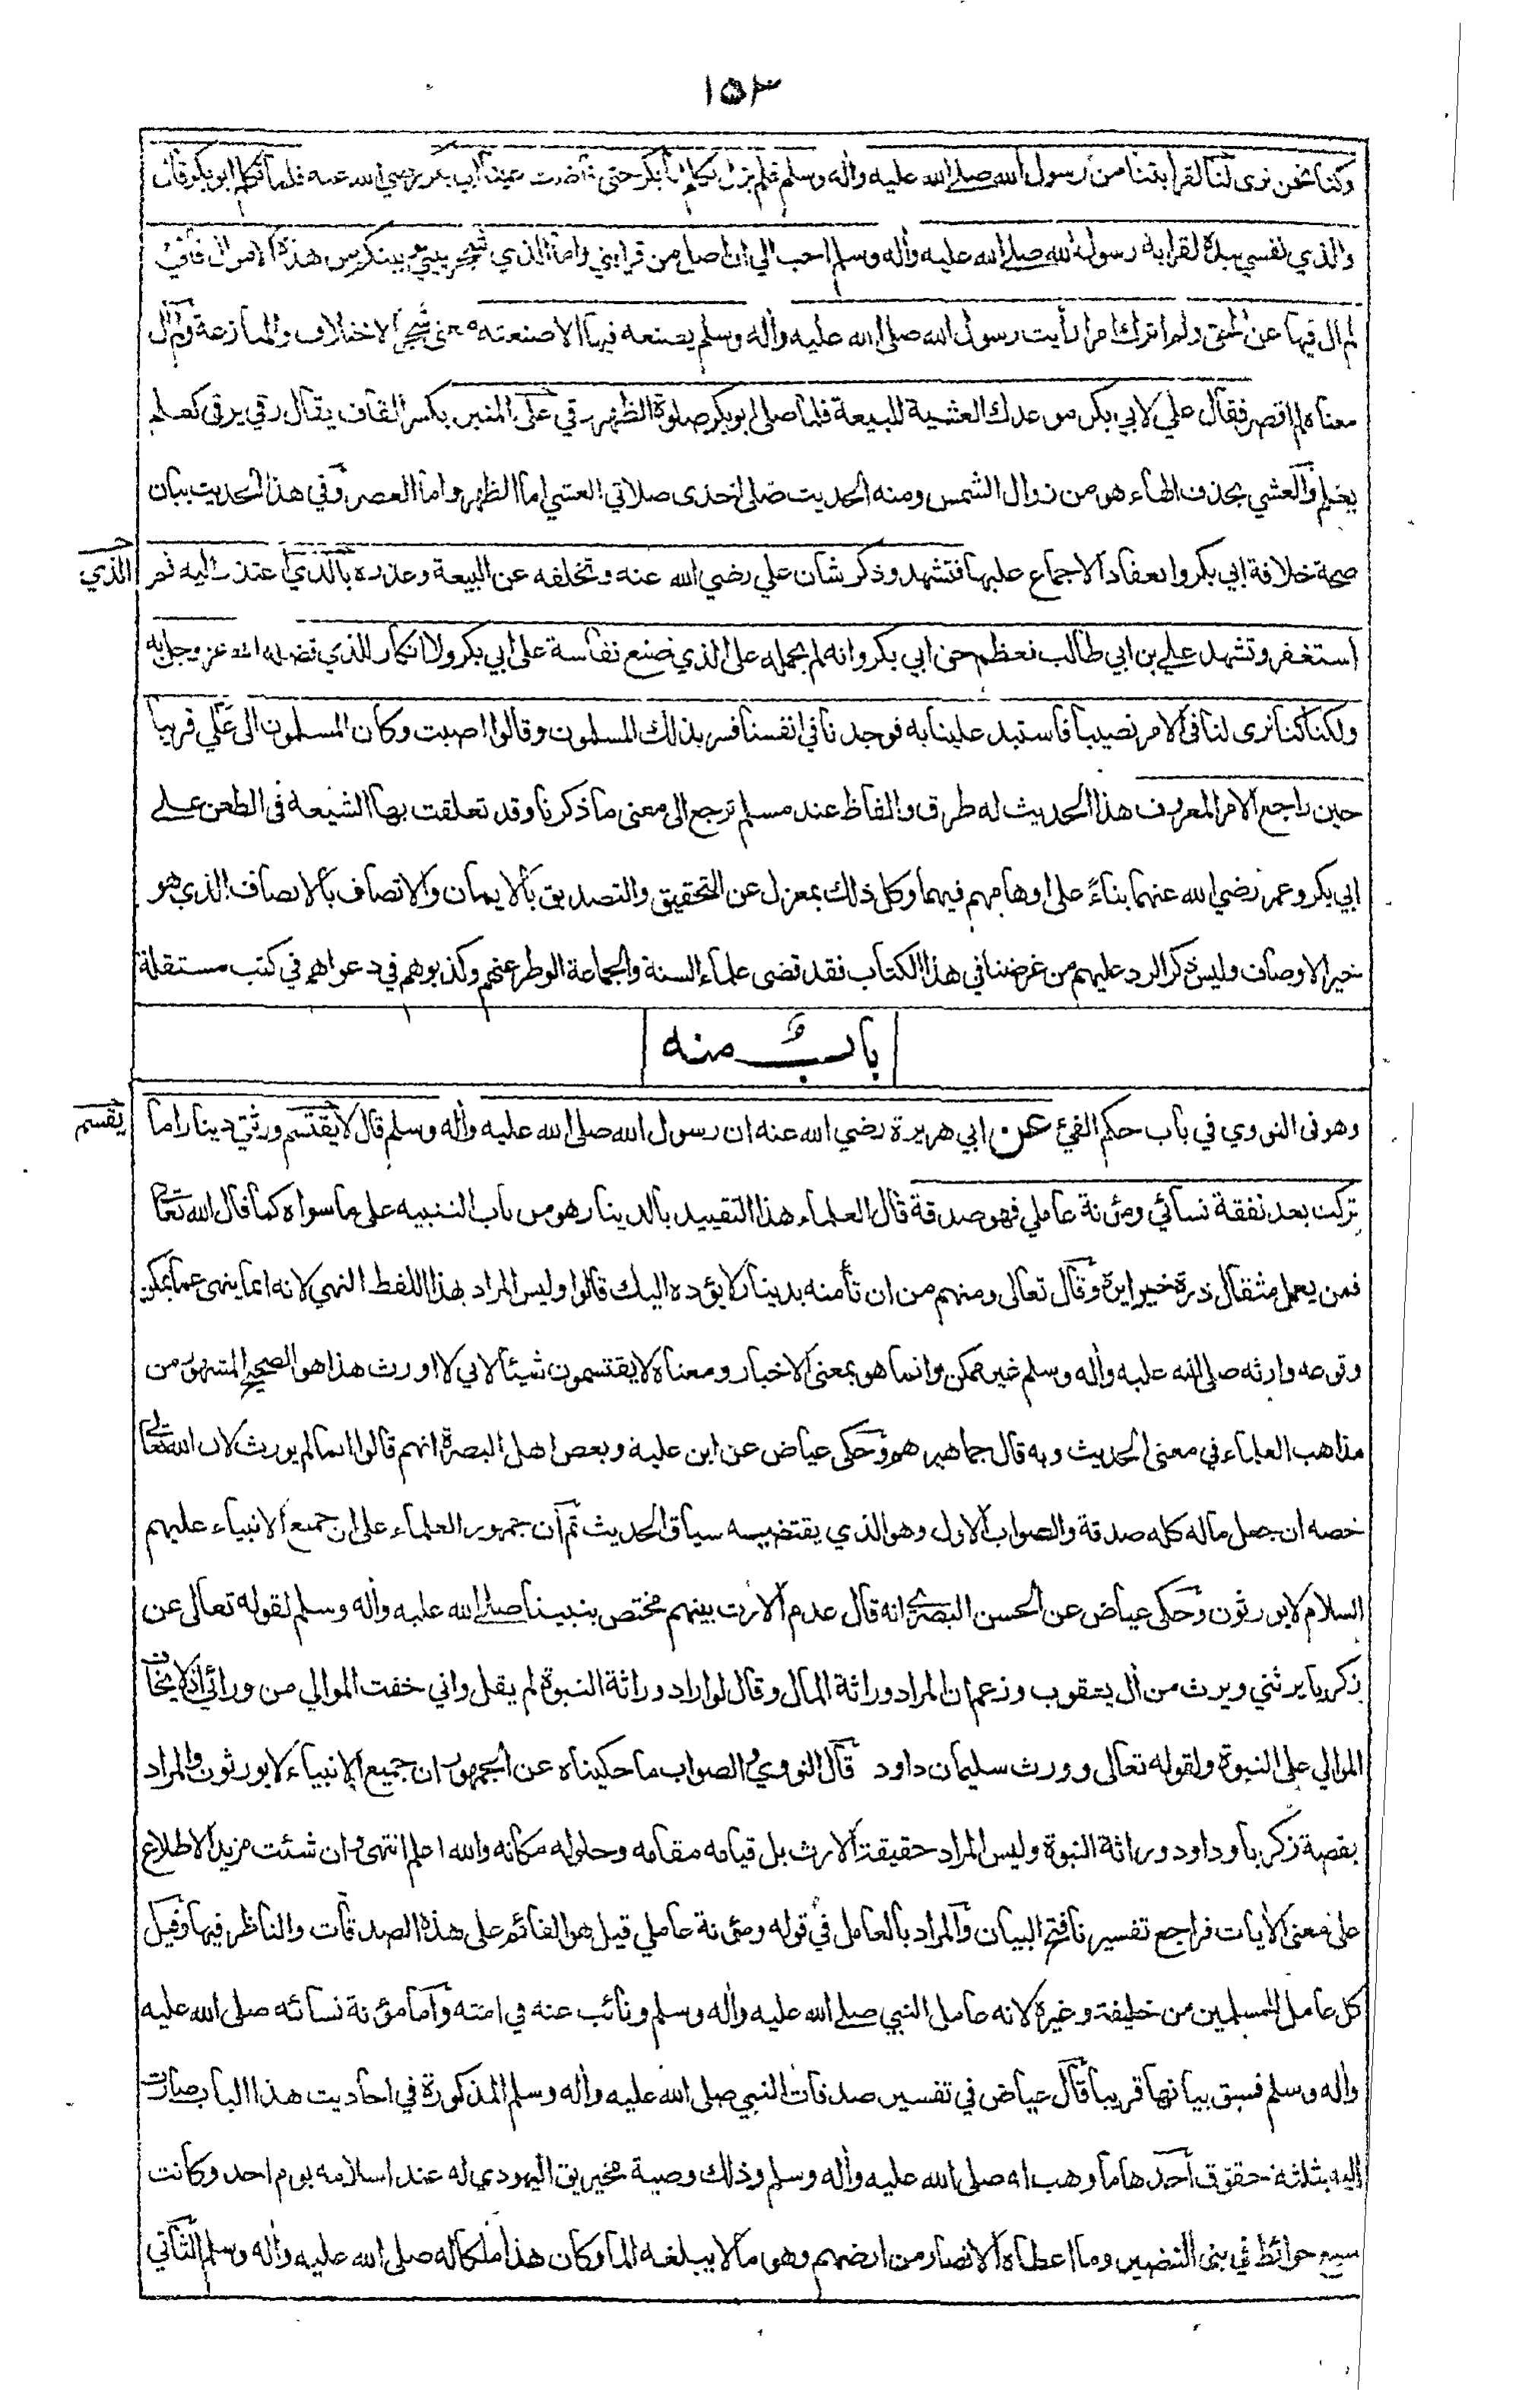 ١٥٣
وكنا نحن نرى لنا لقرابتنا من رسول الله صلى الله عليه وأله وسلم فلم يزل يكلم أبا بكر حتى فاضت عينا أبي بكر رضي الله عنه فلما تكلم ابو بكر قال
والذي نفسي بيده لقرابة رسول الله صلى الله عليه وأله وسلم احب الي ان اصل من قرابتي واما الذي شجر بيني وبينكم من هذه الاموال فاني
لم ال فيها عن الحق ولم اترك امرا رأيت رسول الله صلى الله عليه وأله وسلم يصنعه فيها الا صنعته معنى شجر الاختلاف والمنازعة ولم ال
معناه لم اقصر فقال علي لابي بكر موعدك العشية للبيعة فلما صلى ابو بكر صلوة الظهر رقي على المنبر بكسر القاف يقال رقي يرقى كعلم
يعلم والعشي بحذف الهاء هو من زوال الشمس ومنه الحديث صلى احدى صلاتي العشي اما الظهر واما العصر وفي هذا الحديث بيان
صحة خلافة ابي بكر وانعقاد الاجماع عليها فتشهد وذكر شان علي رضي الله عنه وتخلفه عن البيعة وعذره بالذي اعتذر اليه ثم
الذي
استغفر وتشهد علي بن ابي طالب فعظم حق ابي بكر وانه لم يحمله على الذي صنع نفاسة على ابي بكر ولا انكار للذي فضله الله عز وجل به
ولكنا كنا نرى لنا في الامر نصيبا فاستبد علينا به فوجدنا في انفسنا فسر بذلك المسلمون وقالوا اصبت وكان المسلمون الى علي قريبا
حين راجع الامر المعروف هذا الحديث له طرق والفاظ عند مسلم ترجع الى معنى ما ذكرنا وقد تعلقت بها الشيعة في الطعن على
ابي بكر وعمر رضي الله عنهما بناءً على اوهامهم فيهما وكل ذلك بمعزل عن التحقيق والتصديق بالايمان والاتصاف بالانصاف الذي هو
خير الاوصاف وليس ذكر الرد عليهم من غرضنا في هذا الكتاب فقد قضى علماء السنة والجماعة الوطر عنهم وكذبوهم في دعواهم في كتب مستقلة
باب منه
وهو في النووي في باب حكم الفيء عن ابي هريرة رضي الله عنه ان رسول الله صلى الله عليه وأله وسلم قال لا يقتسم ورثتي دينارا ما
يقسم
تركت بعد نفقة نسائي ومؤنة عاملي فهو صدقة قال العلماء هذا التقييد بالدينار هو من باب التنبيه على ما سواه كما قال الله تعالى
فمن يعمل مثقال ذرة خيرا يره وقال تعالى ومنهم من ان تأمنه بدينار لا يؤده اليك قالوا وليس المراد بهذا اللفظ النهي لانه انما ينهى عما يمكن
وقوعه وارثه صلى الله عليه وأله وسلم غير ممكن وانما هو بمعنى الاخبار ومعناه لا يقتسمون شيئا لاني لا اورث هذا هو الصحيح المشهور من
مذاهب العلماء في معنى الحديث وبه قال جماهيرهم وحكى عياض عن ابن علية وبعض اهل البصرة انهم قالوا انما لم يورث لان الله تعالى
خصه ان جعل ماله كله صدقة والصواب الاول وهو الذي يقتضيه سياق الحديث ثم ان جمهور العلماء على ان جميع الانبياء عليهم
السلام لا يورثون وحكى عياض عن الحسن البصري انه قال عدم الارث بينهم مختص بنبينا صلى الله عليه وأله وسلم لقوله تعالى عن
زكريا يرثني ويرث من أل يعقوب وزعم ان المراد وراثة المال وقال لو اراد وراثة النبوة لم يقل واني خفت الموالي من ورائي اذ لا يخاف
الموالي على النبوة ولقوله تعالى وورث سليمان داود قال النووي والصواب ما حكيناه عن الجمهور ان جميع الانبياء لا يورثون والمراد
بقصة زكريا وداود وراثة النبوة وليس المراد حقيقة الارث بل قيامه مقامه وحلوله مكانه والله اعلم انتهى وان شئت مزيد الاطلاع
على معنى الأيات فراجع تفسيرنا فتح البيان والمراد بالعامل في قوله ومؤنة عاملي قيل هو القائم على هذه الصدقات والناظر فيها وقيل
كل عامل للمسلمين من خليفة وغيره لانه عامل النبي صلى الله عليه وأله وسلم ونائب عنه في امته واما مؤنة نسائه صلى الله عليه
وأله وسلم فسبق بيانها قريبا قال عياض في تفسير صدقات النبي صلى الله عليه وأله وسلم المذكورة في احاديث هذا الباب صارت
اليه بثلثة حقوق احدها ما وهب له صلى الله عليه وأله وسلم وذلك وصية مخيريق اليهودي له عند اسلامه يوم احد وكانت
سبع حوائط في بني النضير وما اعطاه الانصار من ارضهم وهو ما لا يبلغه الماء وكان هذا ملكا له صلى الله عليه وأله وسلم الثاني